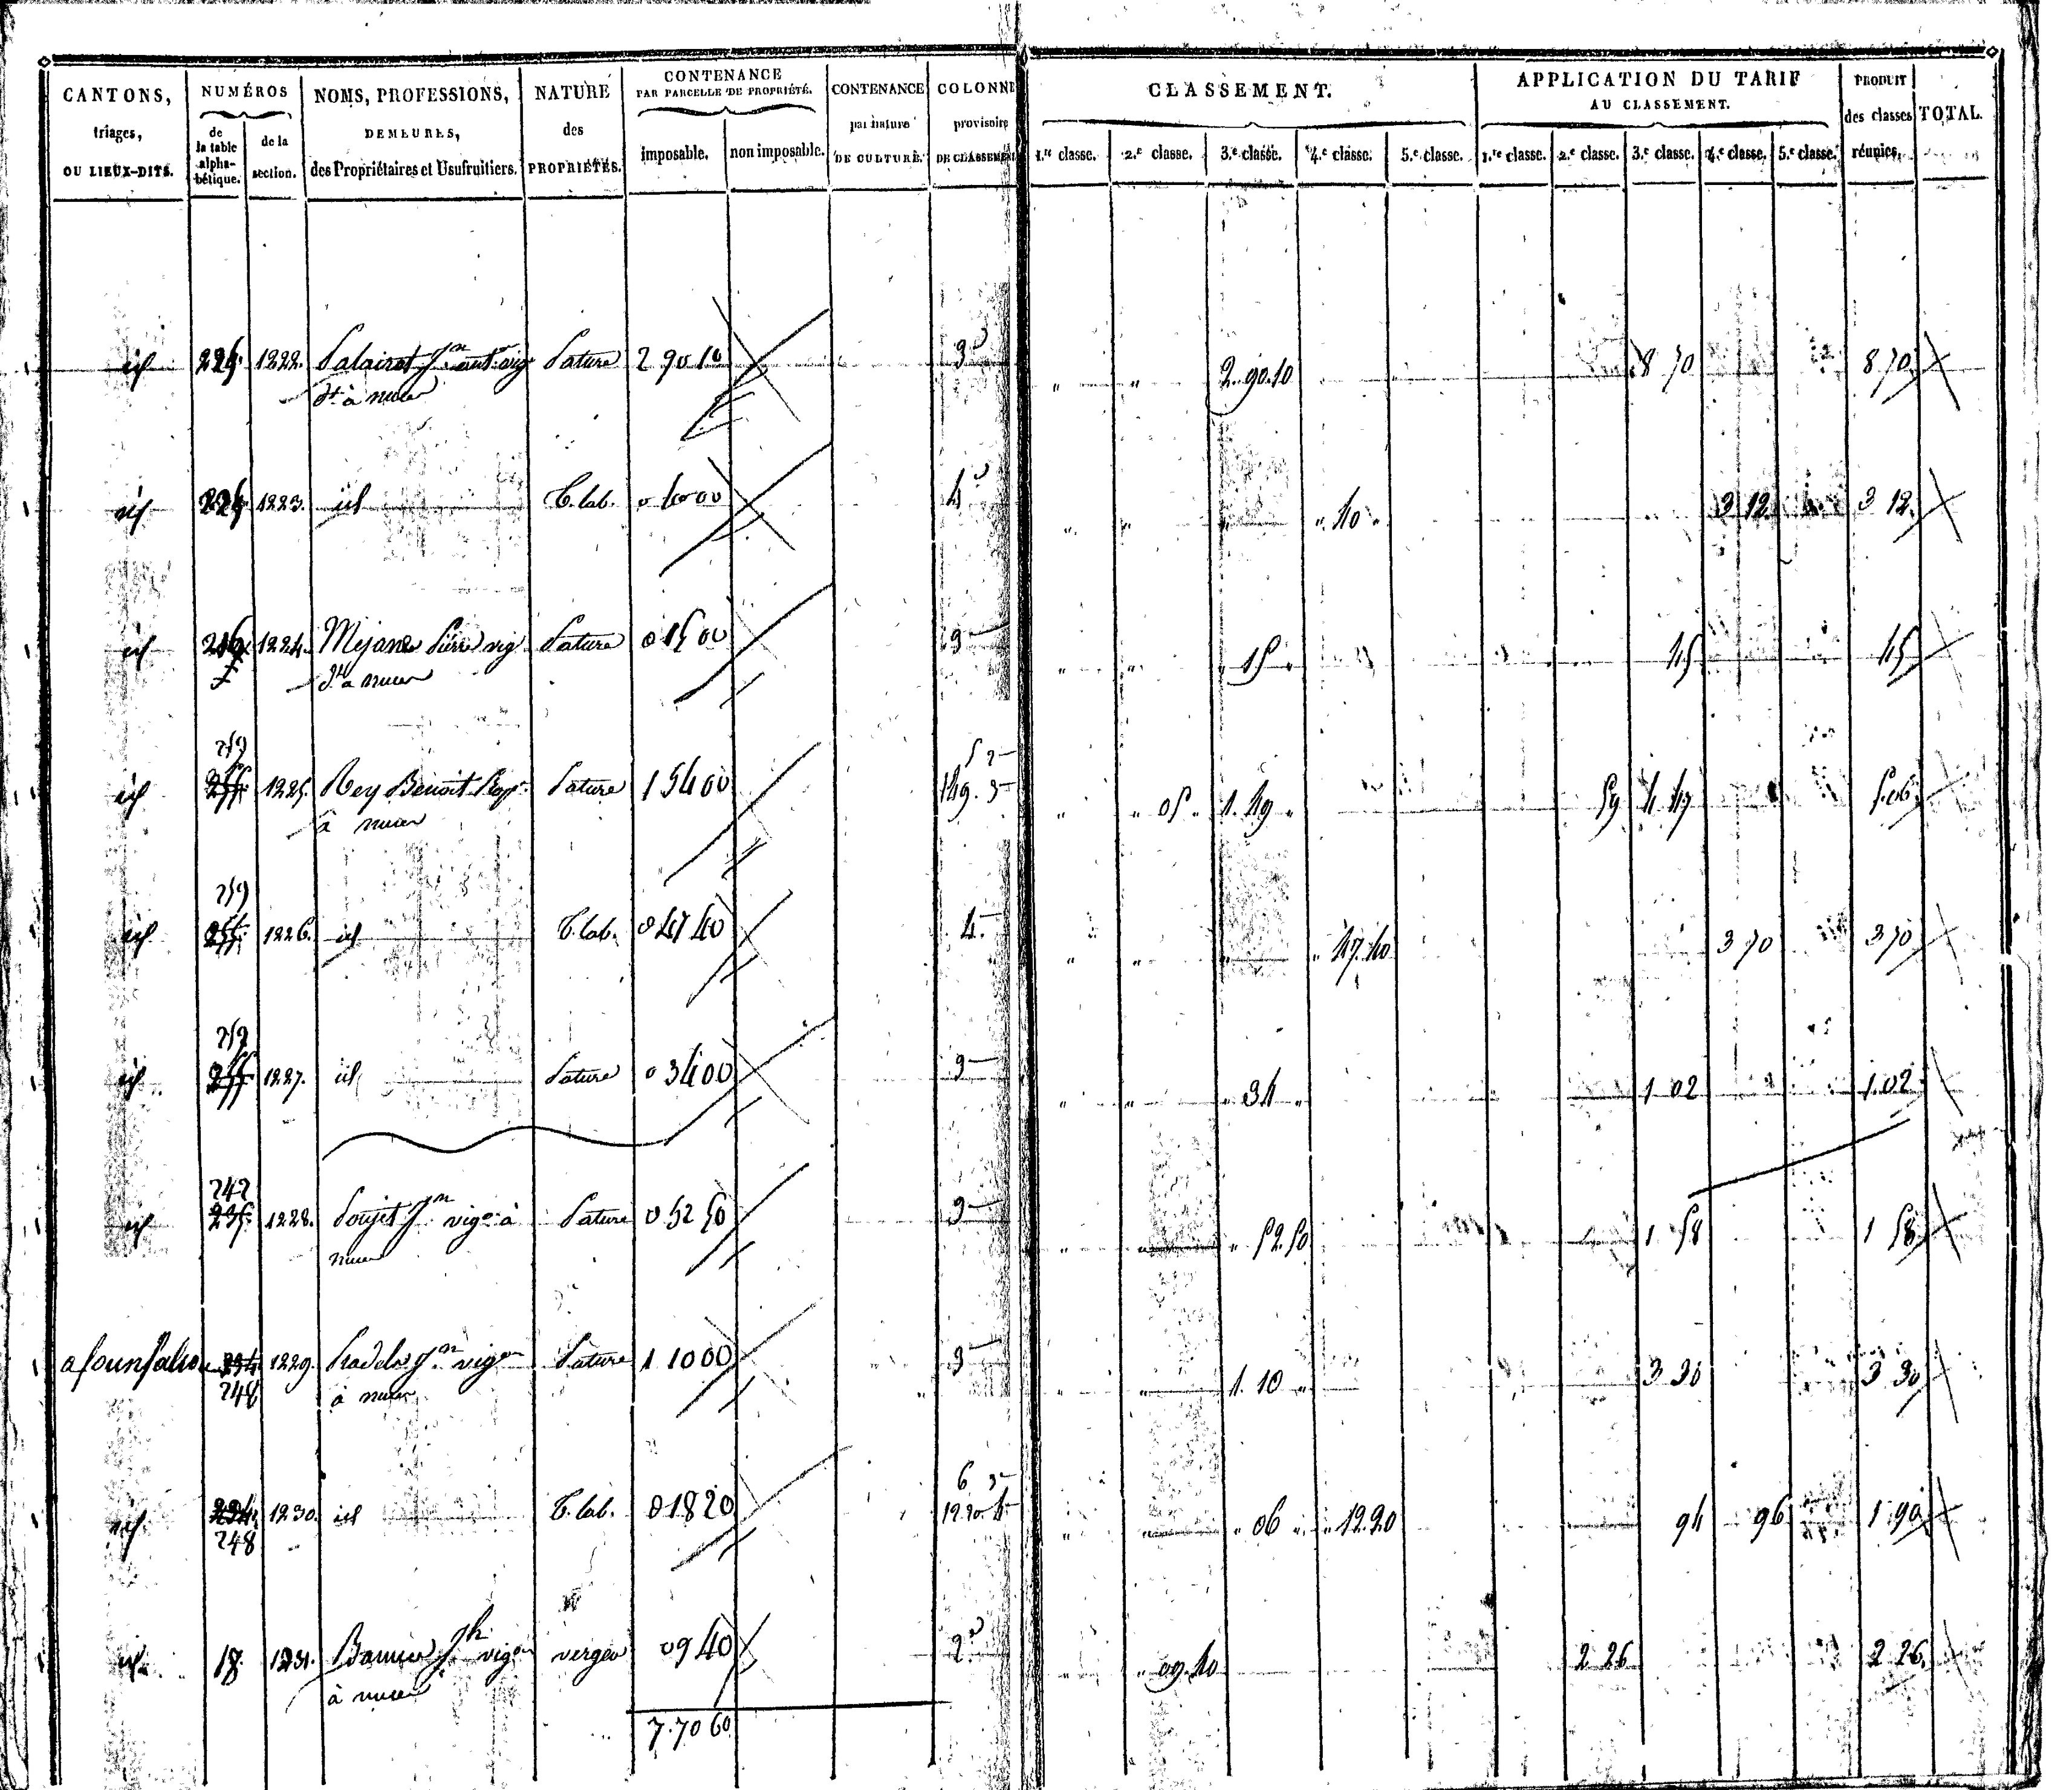 CANTONS, triages, OU LIEUX-DITS. NUMÉROS de la table alphabétique. de la section. NOMS, PROFESSIONS, DEMEURES, des Propriétaires et Usufruitiers. NATURE des PROPRIÉTÉS. CONTENANCE PAR PARCELLE DE PROPRIÉTÉ. imposable. non imposable. CONTENANCE par nature DE CULTURE. COLONNE provisoire DE CLASSEMENT CLASSEMENT. 1.re classe. 2.e classe. 3.e classe. 4.e classe. 5.e classe. APPLICATION DU TARIF AU CLASSEMENT. 1.re classe. 2.e classe. 3.e classe. 4.e classe. 5.e classe. PRODUIT des classes réunies. TOTAL.
id 1222. Pature 2 90 10 3e 2. 90. 10 8 70 8 70
à nuces
id 1223. id T. lab. 0 40 00 4e 40 3 12 3 12.
id 1224. Mejane Pierre vig Pature 0 15 00 3 15 45 45
à nuces
259 5 2
id 1225. Rey Benoit Pature 1 54 00 149. 3 05 1. 49 59 4 47 5. 06
à nuces
259
id 1226. id T. lab. 0 47 40 4. 47. 40 3 70 3 70
259
id 1227. id Pature 0 34 00 3 34 1 02 1. 02
242
id 235. 1228. Poujet Jn vign à Pature 0 52 50 3 52. 50 1 58 1 58
nuces
234 1229. Pradels Jn vign Pature 1 10 00 3 1. 10 3 30 3 30
248 à nuces
6 3
id 234. 1230. id T. lab. 0 18 20 12. 20. 4 06 12. 20 94 96 1 90
248
id 18. 1231. Jh vign verger 09 40 2e 09. 40 2 26 2 26.
à nuces
7. 70 60